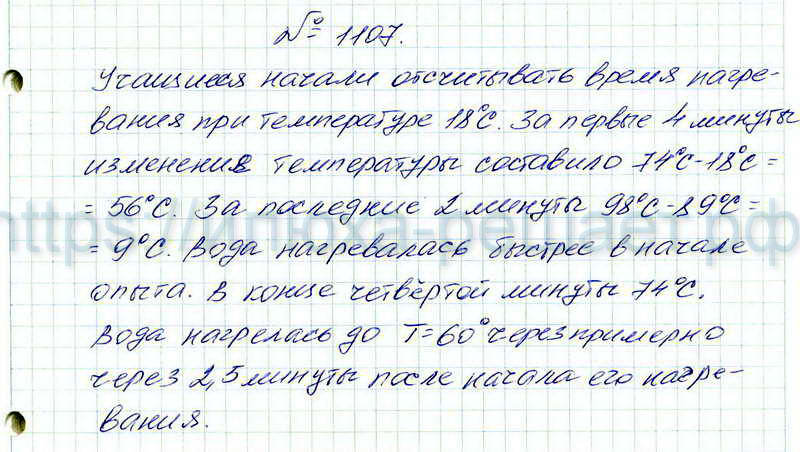 № 1107.
Учащиеся начали отсчитывать время нагре-
вания при температуре 18°С. За первые 4 минуты
изменение температуры составило 74°С-18°С =
= 56°С. За последние 2 минуты 98°С-89°С =
https://илюха-решает.рф
= 9°С. Вода нагревалась быстрее в начале
опыта. В конце четвёртой минуты 74°С.
Вода нагрелась до Т=60° через примерно
через 2,5 минуты после начала его нагре-
вания.